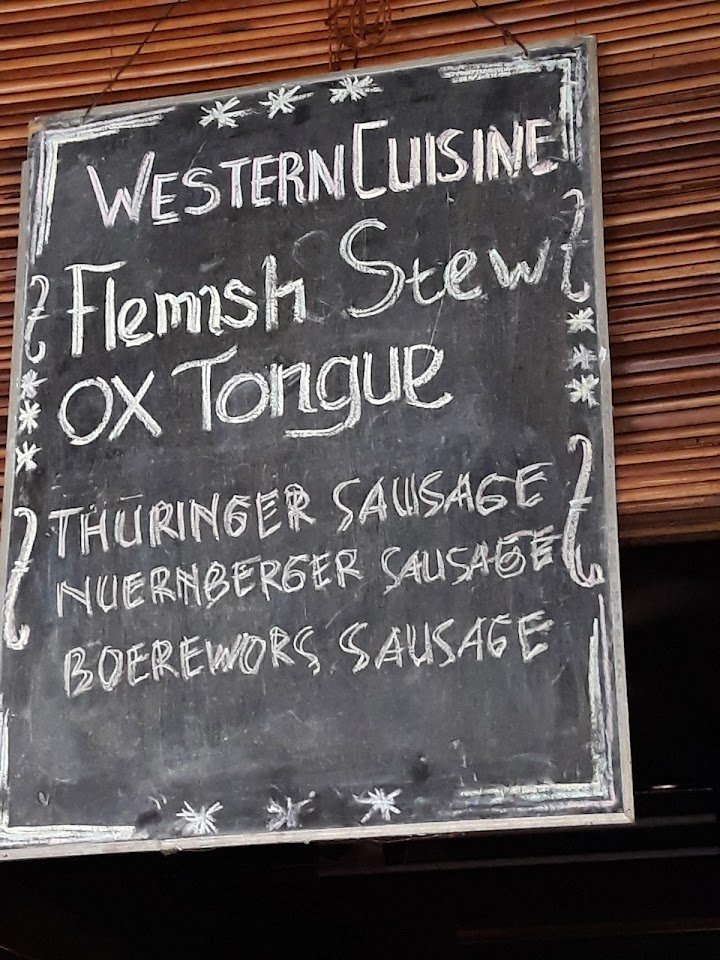 WESTERN CUISINE
Flemish Stew
OX Tongue
THÜRINGER SAUSAGE
NUERNBERGER SAUSAGE
BOEREWORS SAUSAGE